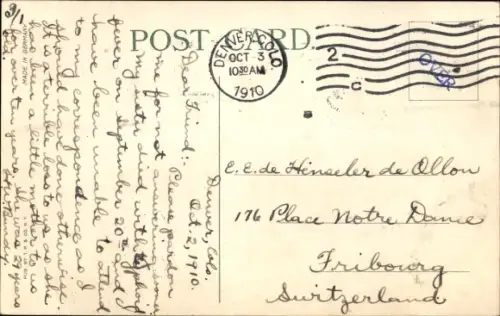 POST CARD.
DENVER, COLO.
OCT 3
10 30 AM
1910
2
c
OVER
9/1
Denver, Colo.
Oct. 2, 1910.
Dear Friend:
Please pardon
me for not answering sooner
my sister died with typhoid
fever on September 20th and I
have been unable to attend
to my correspondence as I
should have done otherwise.
It is a terrible loss to us as she
has been a little mother to us
for over ten years. She was 29 years
old.
E. E. de Hinseler de Ollon
176 Place Notre Dame
Fribourg
Switzerland